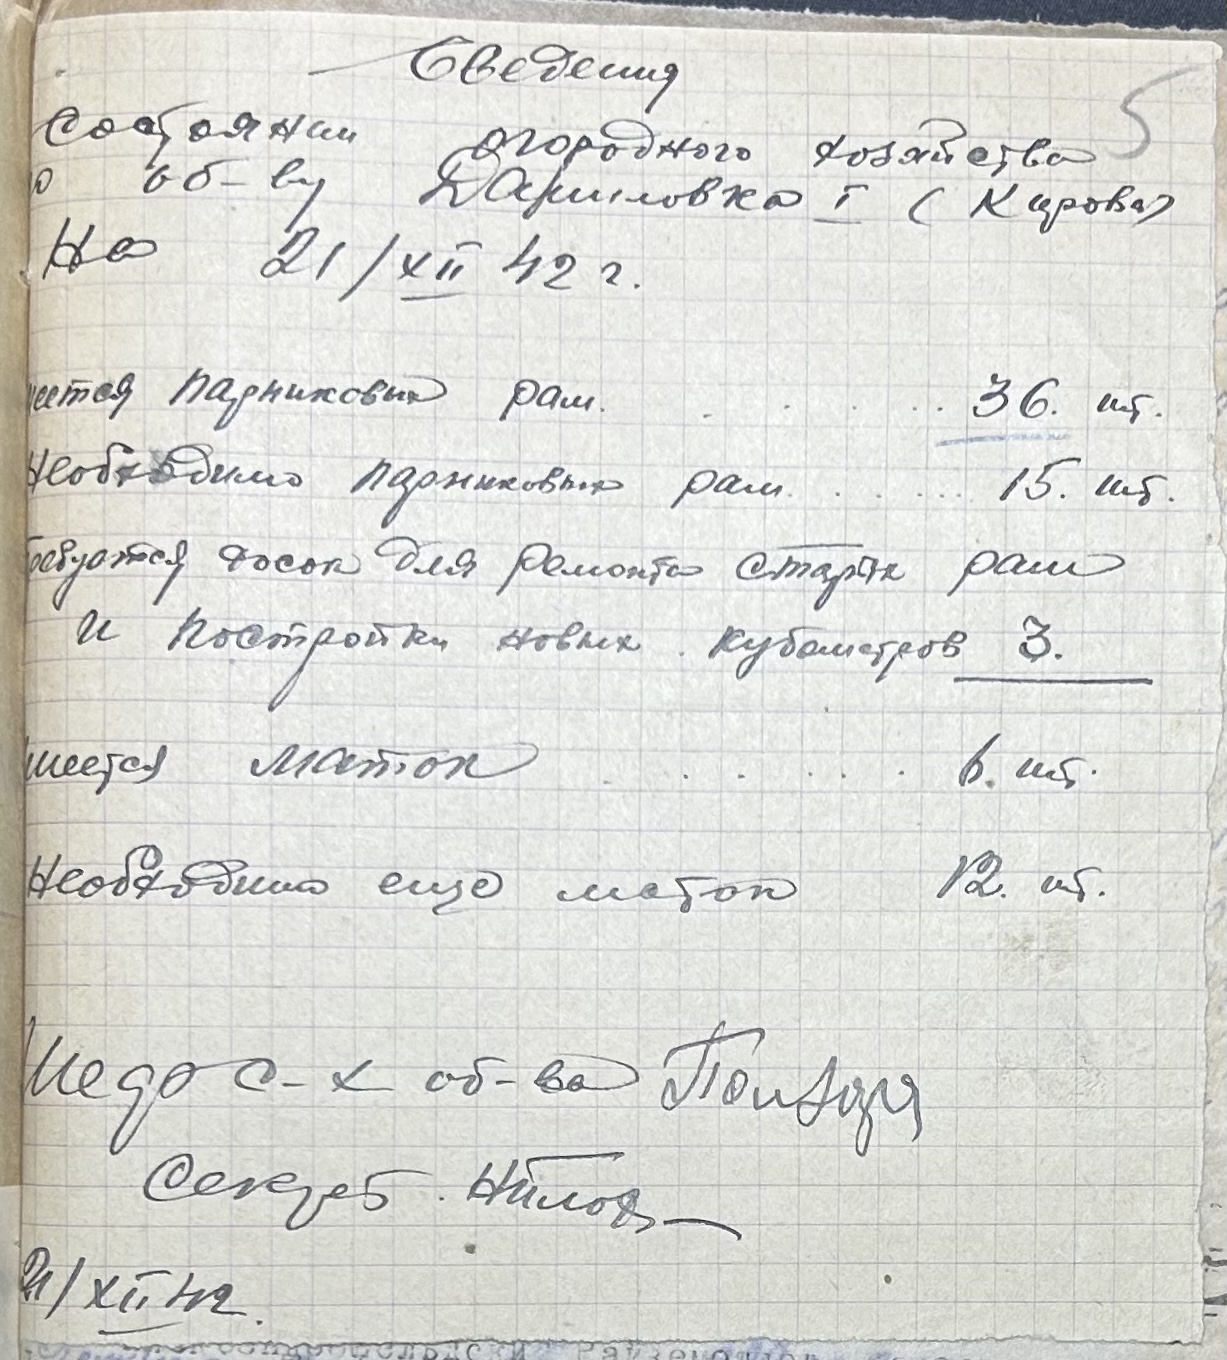 Сведения
5
Состоянии огородного хозяйства
о об-ву Даниловка I (Кирова)
На 21/XII 42 г.
меется парниковых рам. . . . . . . 36. шт.
Необходимо парниковых рам. . . . . . . 15. шт.
ребуется досок для ремонта старых рам
и постройки новых кубометров 3.
имеется маток . . . . . . . 6. шт.
Необходимо еще маток 12. шт.
с-х об-ва
Секрет.
21/XII 42.